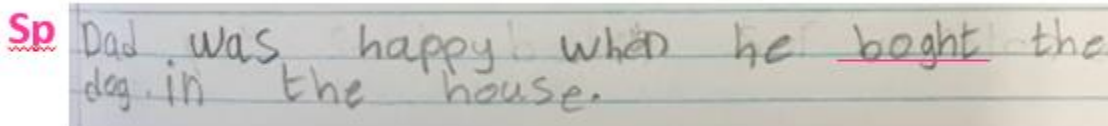 Sp Dad was happy when he boght the
dog in the house.